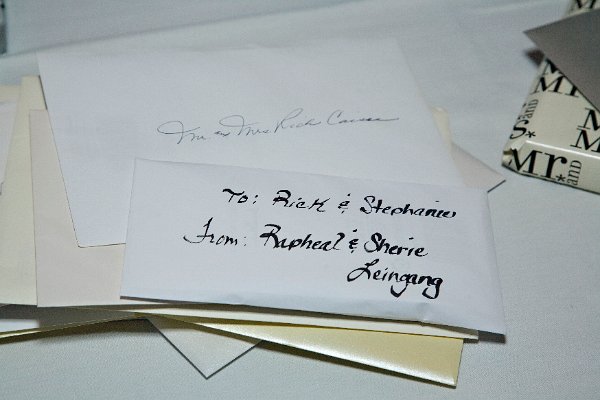 Mr. and Mrs. Rick
To: Rick & Stephanie
From: Rapheal & Sherie
Leingang
Mr.
AND
s.
Mr.
AND
M